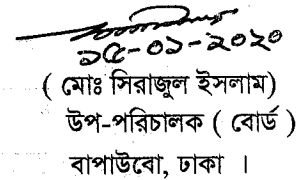 ১৫-০১-২০২০
( মোঃ সিরাজুল ইসলাম)
উপ-পরিচালক ( বোর্ড )
বাপাউবো, ঢাকা ।